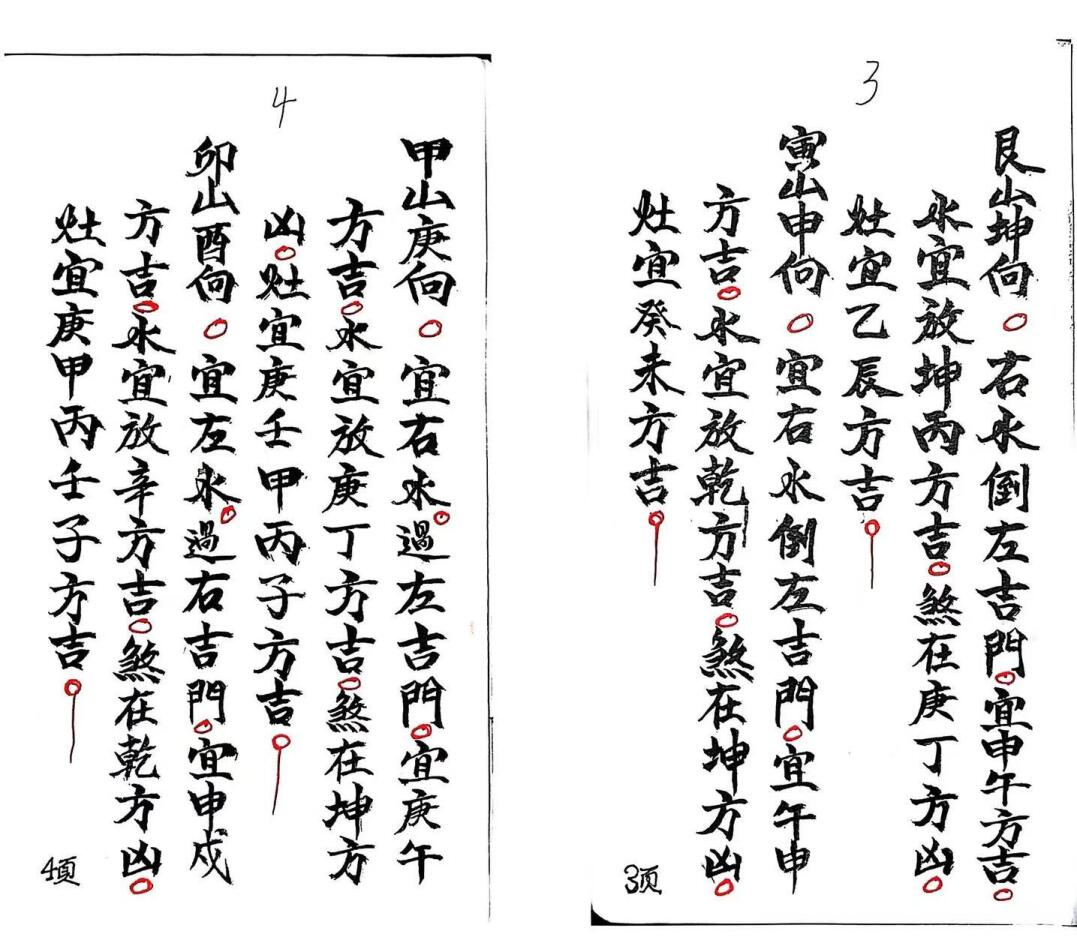 3
艮山坤向。右水倒左吉門。宜申午方吉。
水宜放坤丙方吉。煞在庚丁方凶。
灶宜乙辰方吉。
寅山申向。宜右水倒左吉門。宜午申
方吉。水宜放乾方吉。煞在坤方凶。
灶宜癸未方吉。
3页
4
甲山庚向。宜右水。過左吉門。宜庚午
方吉。水宜放庚丁方吉。煞在坤方
凶。灶宜庚壬甲丙子方吉。
卯山酉向。宜左水。過右吉門。宜申戌
方吉。水宜放辛方吉。煞在乾方凶。
灶宜庚甲丙壬子方吉。
4页